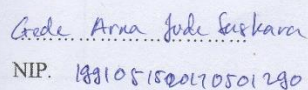 Gede Arna Jude Saskara
NIP. 199105152017050 1290